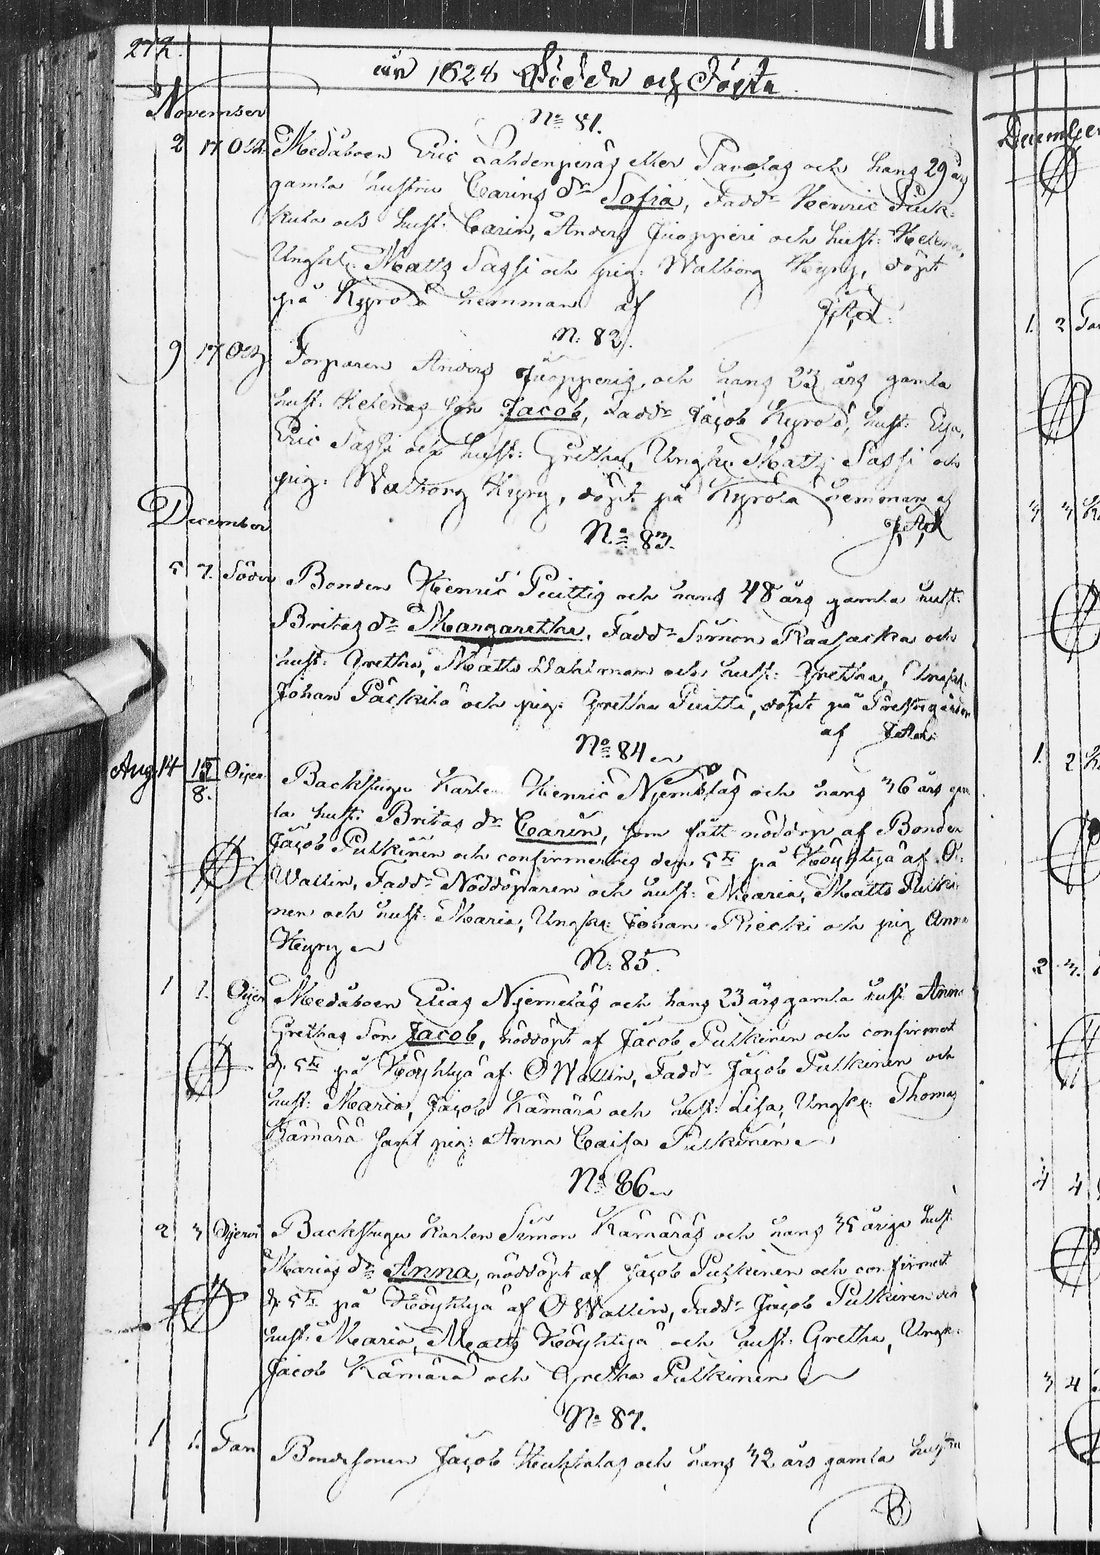 272.
år 1824 Födde och Döpta
November
N:o 81.
2 17 Oth. Medåboen Eric Lahdenperäs eller Pavolas och hans 29 års
gamla hustru Carins dr Sofia, Fadd:r Henric Puk-
kila och hust: Carin, Anders Juopperi och hust: Helena,
Ungkl: Matts Sassi och pig: Walborg Kyrö, döpt
på Kyrölä hemman af
N: 82.
9 17 Torparen Anders Juopperis, och hans 23 års gamla
hust: Helenas son Jacob, Fadd:r Jacob Kyrölä, hust: Eva,
Eric Sassi och hust: Gretha, Ungk: Matts Sassi och
pig: Walborg Kyrö, döpt på Kyrölä hemman af
December
N:o 83.
5 7. Söder Bonden Henric Puittis och hans 48 års gamla hust:
Britas dr Margaretha, Fadd:r Simon Raasacka och
hust: Gretha, Matts Dahlman och hust: Gretha,
Johan Päckilä och pig: Gretha Puitti, döpt på Prestgården
af
N:o 84
Aug. 14 15/8. Backstugu Karlen Henric Njemeläs och hans 36 års gam
la hust: Britas dr Carin, som fått nöddop af Bonden
Jacob Pulkinen och confirmertes den 5te på Köyhtyä af O:
Wallin, Fadd:r Nöddöparen och hust: Maria, Matts Pulki-
nen och hust: Maria, Ungk: Johan Riecki och pig Anna
N: 85.
1 1. Medåboen Elias Njemeläs och hans 23 års gamla hust Anna
Grethas Son Jacob, nöddöpt af Jacob Pulkinen och confirmert
d. 5te på Köyhtyä af O Wallin, Fadd:r Jacob Pulkinen och
hust: Maria, Jacob Kämärä och hust: Lisa, Ungk: Thomas
Kämärä samt pig: Anna Caisa Pulkinen
N:o 86
2 3 Backstugu Karlen Simon Kämäräs och hans 35 åriga hust:
Marias dr Anna, nöddöpt af Jacob Pulkinen och confirmert
d. 5te på Köyhtyä af O Wallin, Fadd:r Jacob Pulkinen och
hust: Maria, Matts Köyhtyä och hust: Gretha, Ungk:
Jacob Kämärä och Gretha Pulkinen
N:o 87.
1 1. Bondesonen Jacob Kukkolas och hans 32 års gamla hustru
December
1. 2
3 3
1. 2
2 4.
4 4
3 4